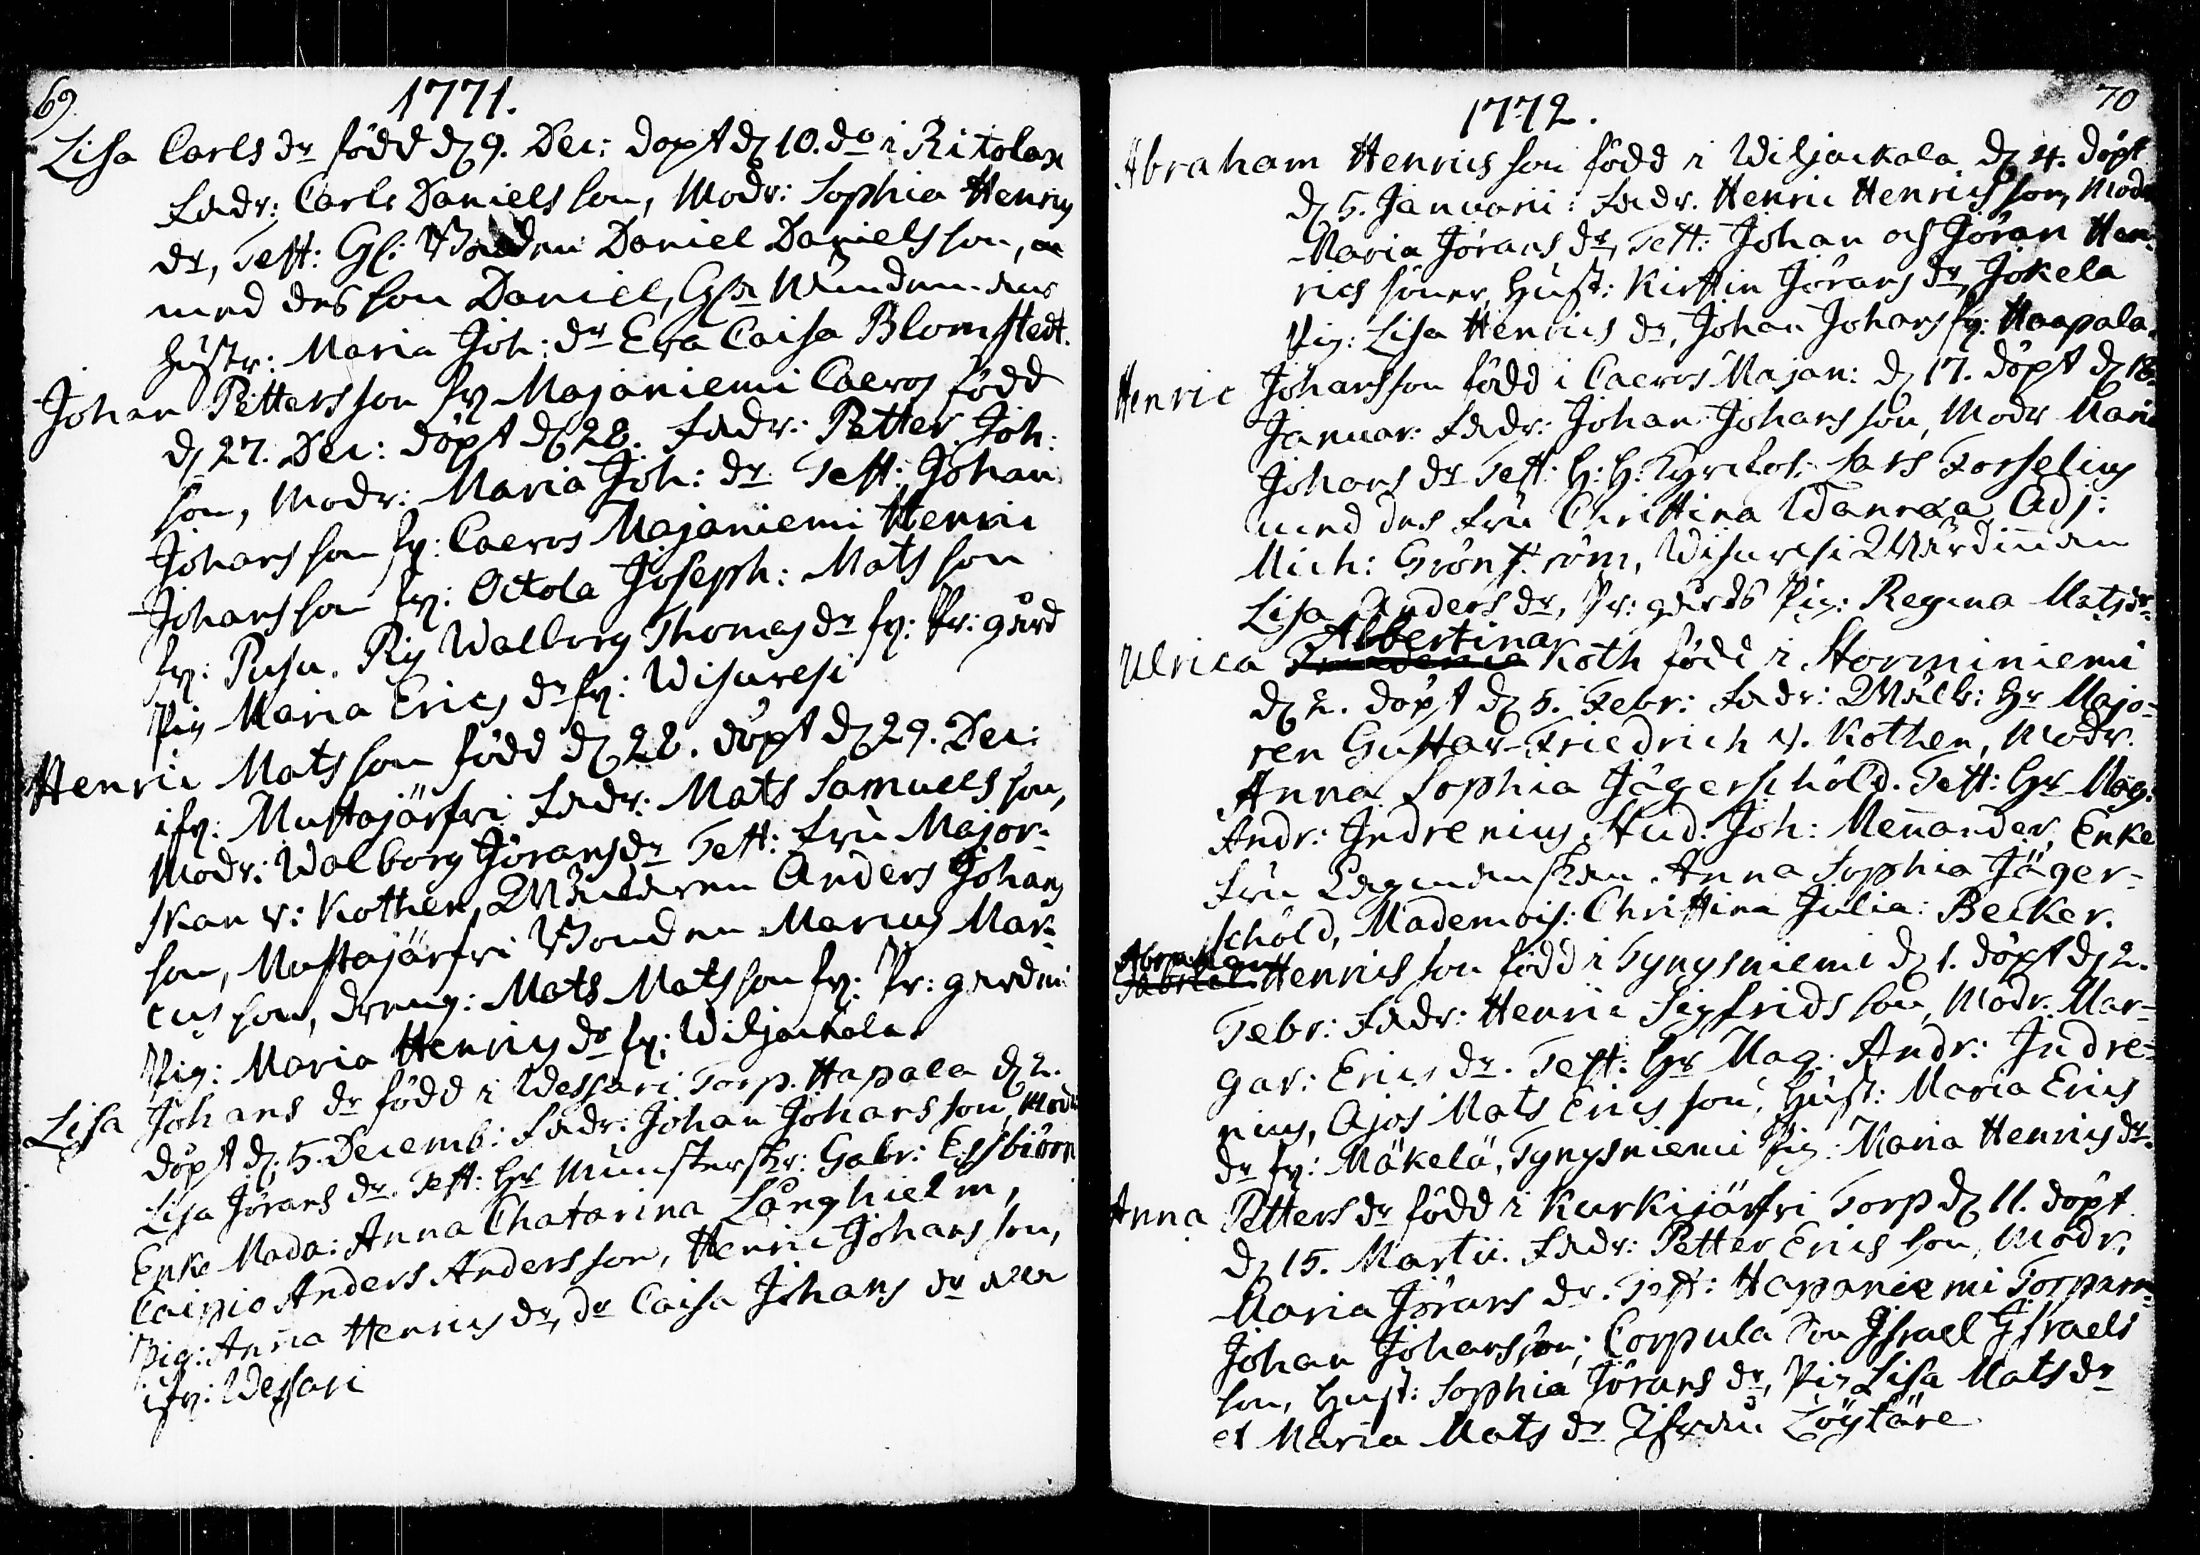 69.
1771.
Lisa Carls dr född d 9. Dec: döpt d 10. do i Ritolax
Fadr: Carl Daniels son, Modr: Sophia Henrics
dr, Test: Gl: Bonden Daniel Daniels son,
med des son Daniel,
hustr: Maria Joh: dr Eva Caisa Blomstedt.
Johan Petters son fr Majaniemi Caeros född
d 27. Dec: döpt d 28. Fadr: Petter Joh:
son, Modr: Maria Joh: dr Test: Johan
Johans son fr: Caeros Majaniemi Henric
Johans son fr: Octola Joseph: Mats son
fr: Pusu. Pig Walborg Thomas dr fr: Pr: gård
Pig Maria Erics dr fr: Wisuvesi
Henric Mats son född d 28. döpt d 29. Dec:
ifr: Mustajärfvi Fadr: Mats Samuels son,
Modr: Walborg Jörans dr Test: Fru Major-
skan v: Kothen, Anders Johans
son, Mustajärfvi Bonden Marcus Mar-
cus son, dreng: Mats Mats son fr: Pr: gården
Pig: Maria Henrics dr fr: Wiljackala.
Lisa Johans dr född i Wessari Torp. Hapala d 2.
döpt d. 5. Decemb: Fadr: Johan Johans son, Modr
Lisa Jörans dr. Test: Hr Munsterskr: Gabr: Essbiörn
Enke Mada: Anna Chatarina Långhielm,
Caipio Anders Anders son, Henric Johans son,
Pig: Anna Henrics dr, dr Caisa Johans dr
ifr: Wessari
70
1772.
Abraham Henrics son född i Wiljackala d 4. döpt
d 5. Januarii: Fadr. Henric Henrics son, Modr
Maria Jörans dr, Test: Johan och Jöran Hen-
rics söner, Hust: Kirstin Jörans dr, Jokela
Pig: Lisa Henrics dr, Johan Johans fr: Haapala.
Henric Johans son född i Caeros Majan: d 17. döpt d 18.
Januar: Fadr: Johan Johans son, Modr Maria
Johans dr Test: H: H: Kyrckoh: Lars Forselius
med des fru Christina Wanæa Adj:
Mich: Grönström, Wisuvesi Wärdinnan
Lisa Anders dr, Pr: gårds Pig: Regina Mats dr.
Albertina
Ulrica Koth född i Storminiemi
d 2. döpt d 5. Febr: Fadr: Wälb: Hr Majo-
ren Gustav Friedrich v. Kothen, Modr.
Anna Sophia Jägerschöld. Test: Hr Mag.
Andr: Indrenius, Stud: Joh: Mennander, Enke
Fru Anna Sophia Jäger-
schöld, Mademois: Christina Julia: Becker.
Abraham
Gabriel Henrics son född i Tynysniemi d 1. döpt d 2.
Febr: Fadr: Henric Sigfrids son, Modr. Mar-
gar: Erics dr. Test: Hr Mag. Andr: Indre-
nius, Ajos Mats Erics son, Hust: Maria Erics
dr fr: Mäkelä, Tynysniemi Pig: Maria Henrics dr.
Anna Petters dr född i Kurkijärfvi Torp d 11. döpt
d 15. Martii. Fadr: Petter Erics son, Modr.
Maria Jörans dr. Test: Hapaniemi Torparn
Johan Johans son, Corpula Son Israel Israels
son, Hust: Sophia Jörans dr, Pig Lisa Mats dr
et Maria Mats dr Ifrån Löytäne